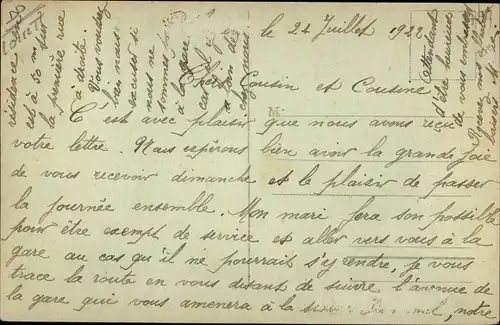 le 24 Juillet 1922
Chers Cousin et Cousine
C'est avec plaisir que nous avons reçu
votre lettre. Nous espérons bien avoir la grande joie
de vous recevoir dimanche et le plaisir de passer
la journée ensemble. Mon mari fera son possible
pour être exempt de service et aller vers vous à la
gare au cas qu'il ne pourrait s'y rendre, je vous
trace la route en vous disant de suivre l'avenue de
la gare qui vous amenera à la notre
résidence
est à 50 m sur
la première rue
à droite.
Vous voudrez
bien nous
excuser si
nous ne
sommes pas
à la gare
car
loin de
chez nous
attendant
d'être heureux
de vous embrasser
Recevez nos
M